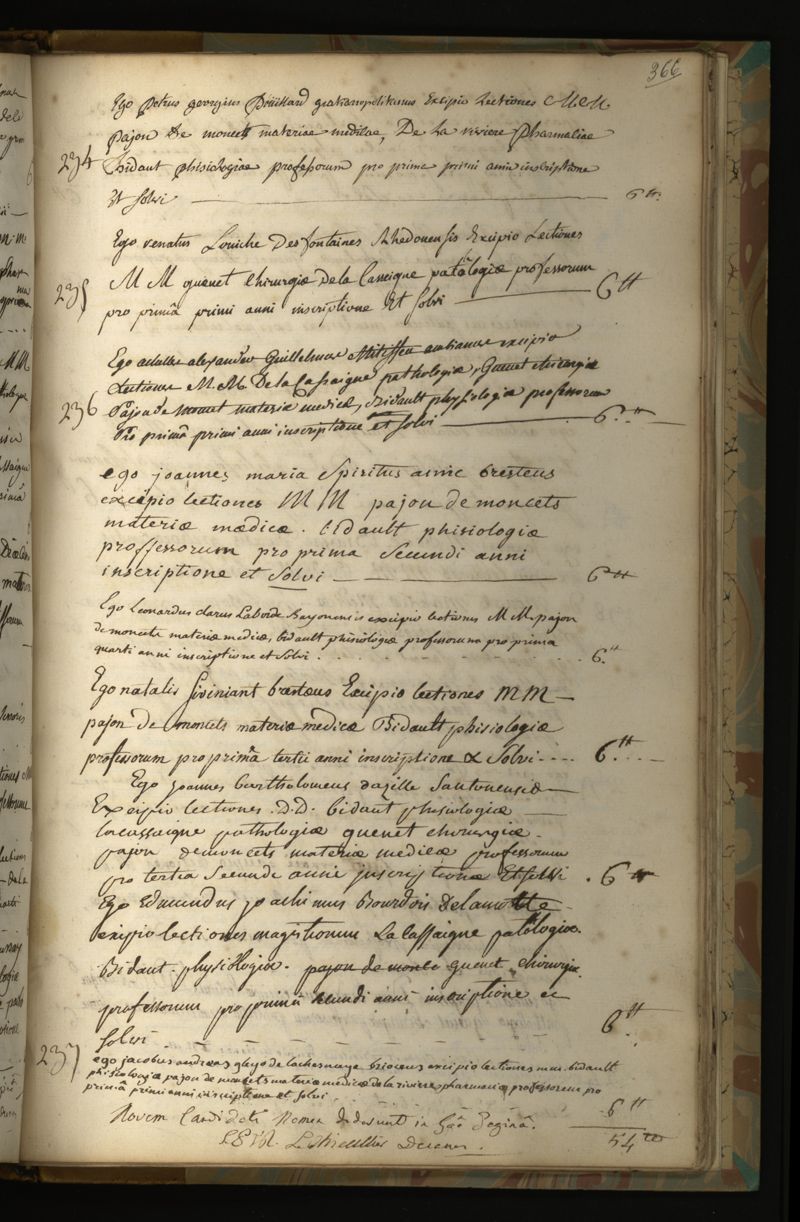 366
Ego petrus georgius Drüillard gratianopolitanus Excipio Lectiones M.M.
pajon de moncets materiae medicae, De La riviere pharmaciae
234 bidaut phisiologiae professorum pro prima primi anni inscriptione
Et solvi 6 tt
Ego renatus Louiche Desfontaines Rhedonensis Excipio Lectiones
M M guenet chirurgiæ De la Cassaigne patologiæ professorum
235 pro primâ primi anni inscriptione Et solvi 6 tt
Ego alexander Guillelmus ambianus excipio
Lectiones M.M. De la Cassaigne pathologiæ, Guenet chirurgiæ
236 Pajon de moncet materiæ medicæ, Bidault physiologiæ professorum
Pro primâ primi anni inscriptione et solvi 6 tt
ego joannes maria Spiritus amic bresteus
excipio lectiones M M pajon de moncets
materiæ mædicæ. bidault phisiologiæ
proffessorum pro prima Secundi anni
inscriptione et Solvi 6 tt
Ego Leonardus clarus Laborde Bayonensis excipio lectiones M M. pajon
de moncets materiæ medicæ, bidault phisiologiæ professorum pro prima
quarti anni inscriptione et solvi 6 tt
Ego natalis Siviniant brestæus Excipio lectiones M M
pajon de moncets materiæ medicæ Bidault phisiologiæ
professorum pro primâ tertii anni inscriptione & Solvi 6 tt
Ego joannes bartholomeus dazille Santonensis
Excipio lectiones .D.D. bidaut phisiologiæ
lacassaigne pathologiæ guenet chirurgiæ
pajon demoncets materiæ medicæ professorum
pro tertia Secundi anni inscriptione Et solvi 6 tt
Ego Edmundus joachimus Bourdois Delamotte
excipio lectiones magistrorum La Cassaigne patologiæ
Bidaut physiologiæ. pajon de monce guenet chirurgiæ
professorum pro primâ secundi anni inscriptione et
solvi 6 tt
237 ego jacobus andreas gleyo de lachesnaye brioceus excipio lectiones m.m. bidault
phisiologiæ pajon de moncets materiæ medicæ de la riviere pharmaciæ professorum pro
primâ primi anni inscriptione et solvi 6 tt
Novem Candidati Nomen dederunt in hâc Paginâ. 54 tt
L. Le Thieullier Decanus.